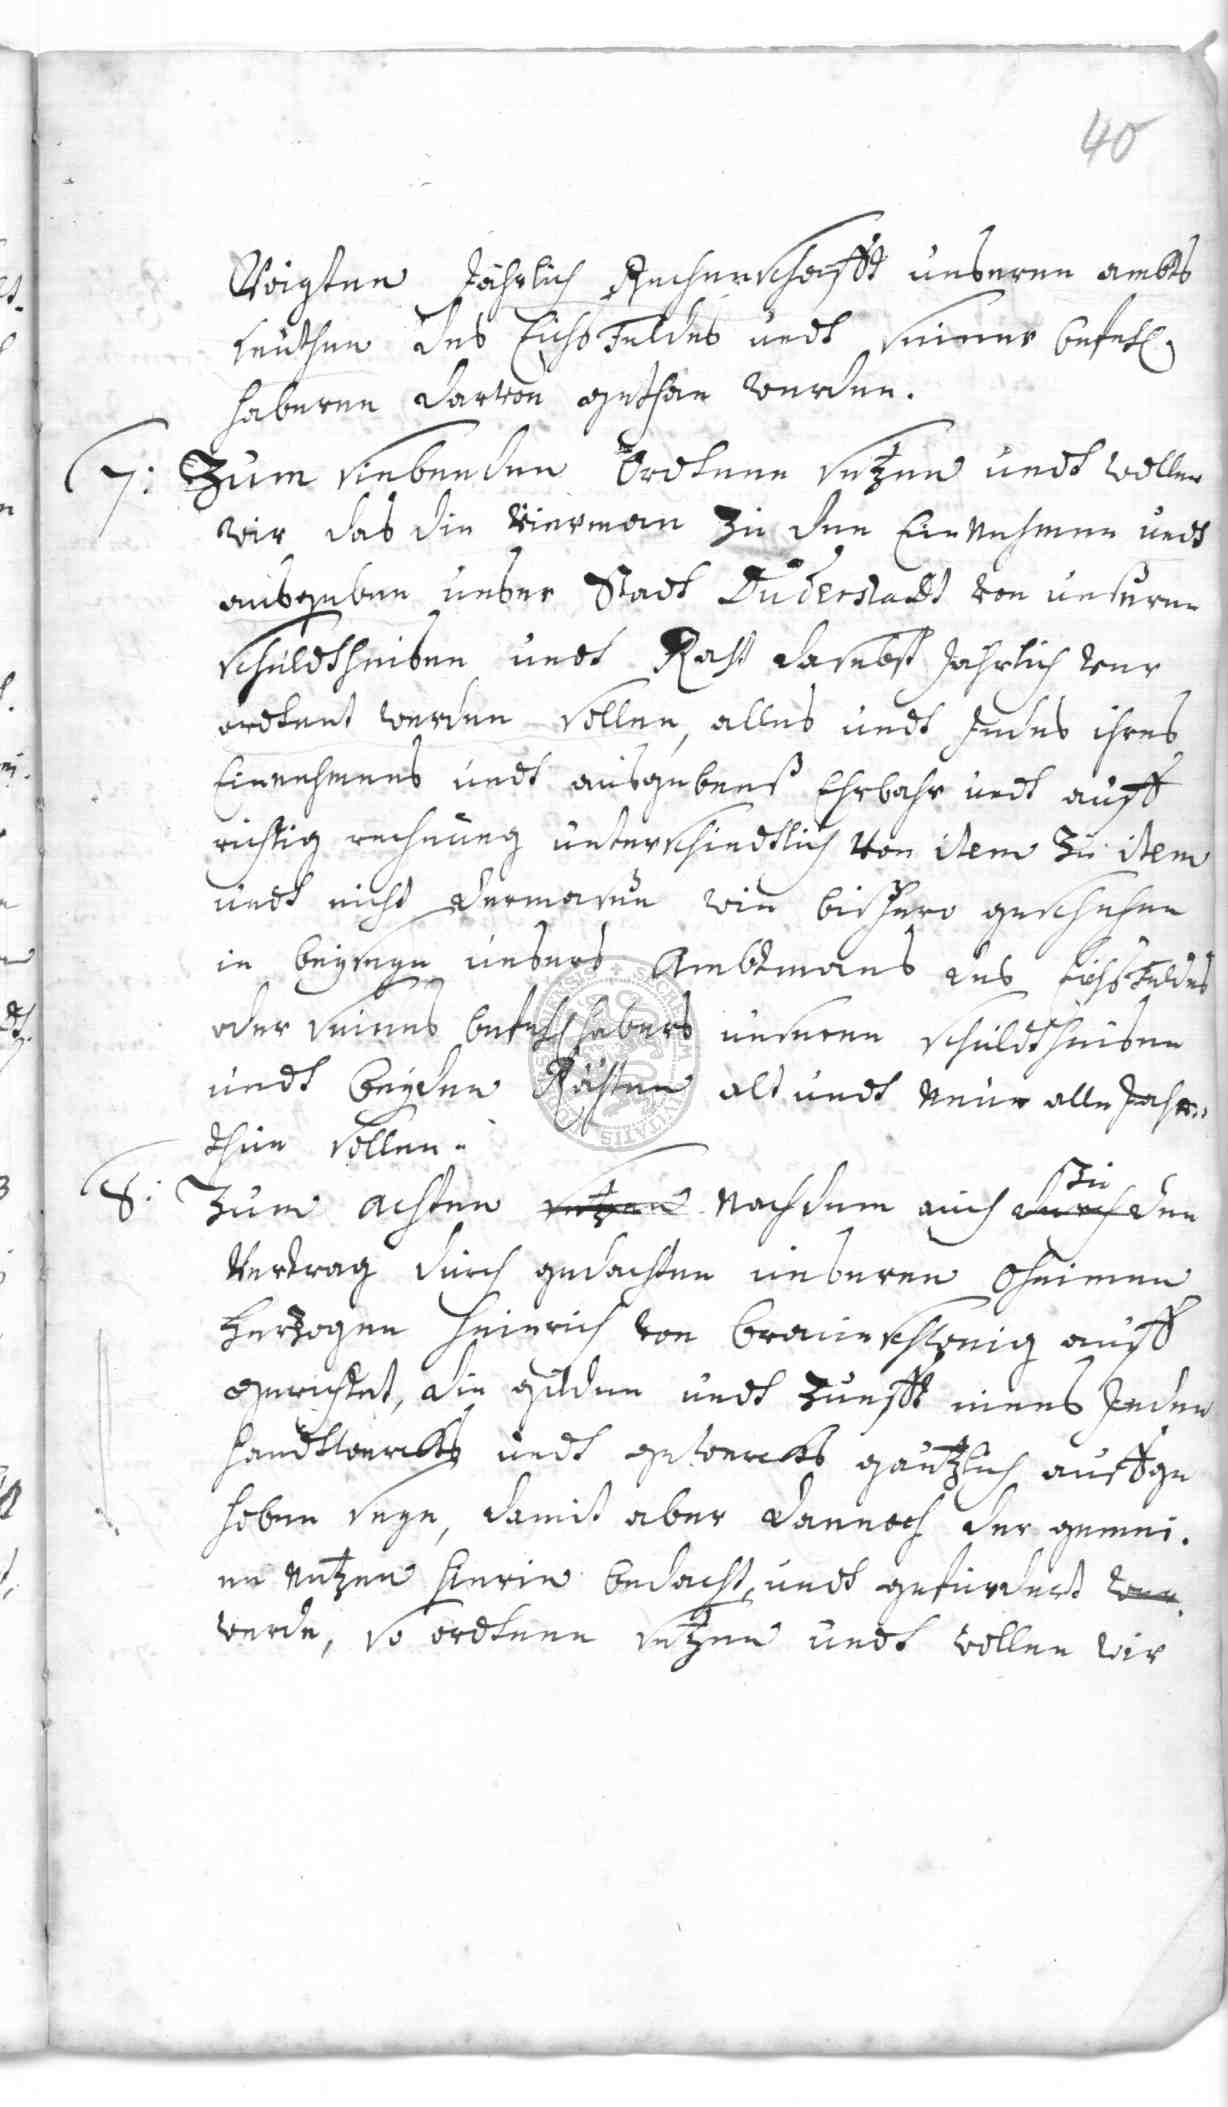 40
Voigten Jährlich Rechenschafft unseren ambts
leuthen des Eichsfeldes undt seiner befehl
haberen darvon gethan werden.
7: Zum siebenden Ordtnen setzen undt wollen
wir das die Vierman zu den Einnehmen undt
ausgeben unser Stadt Duderstadt von unseren
schuldtheisen undt Raht daselbst Jährlich ver
ordtent werden sollen, alles undt Jedes ihres
Einnehmens undt ausgebens Ehrbahr undt auff
richtig rechnung unterschiedtlich von item zu item
undt nicht dermasen wie bishero geschehen
in beyseye unsers Ambtmans des Eichsfeldes
oder seines befehlhabers unseren schuldtheisen
undt beyden Rähten alt undt Neue alle Jahr
thun sollen.
8: Zum achten setzen Nachdem auch durch zu den
Vertrag durch gedachten unseren Oheimen
Hertzogen Heinrich von braunschweig auff
gerichtet, die gülden undt Zunfft eines Jeden
handtwercks undt gewercks gäntzlich auffge
hoben seye, damit aber dannoch der gemei.
ne nutzen hierin bedacht, undt gefürdert wer.
werde, so ordtnen setzen undt wollen wir